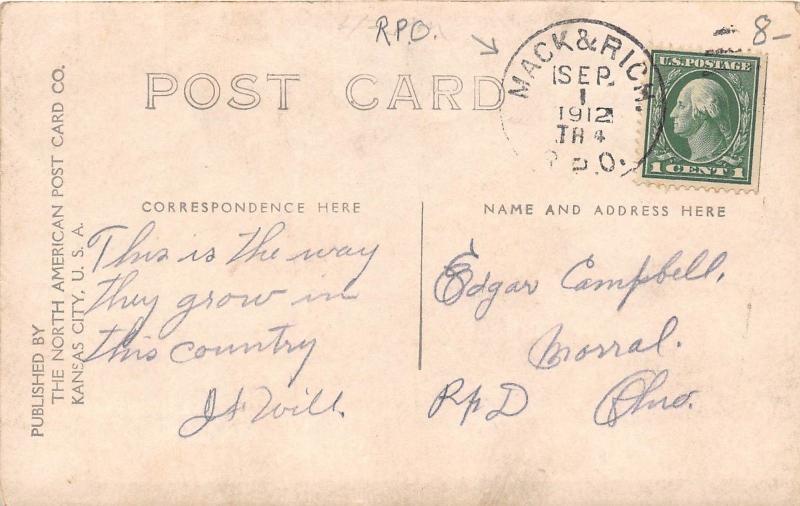 R.P.O.
8-
POST CARD
MACK & RICH.
SEP.
1
1912
TR 4
R.P.O.
U.S. POSTAGE
1 CENT 1
PUBLISHED BY
THE NORTH AMERICAN POST CARD CO.
KANSAS CITY, U. S. A.
CORRESPONDENCE HERE
This is the way
they grow in
this country
Will.
NAME AND ADDRESS HERE
Edgar Campbell,
Morral.
Ohio.